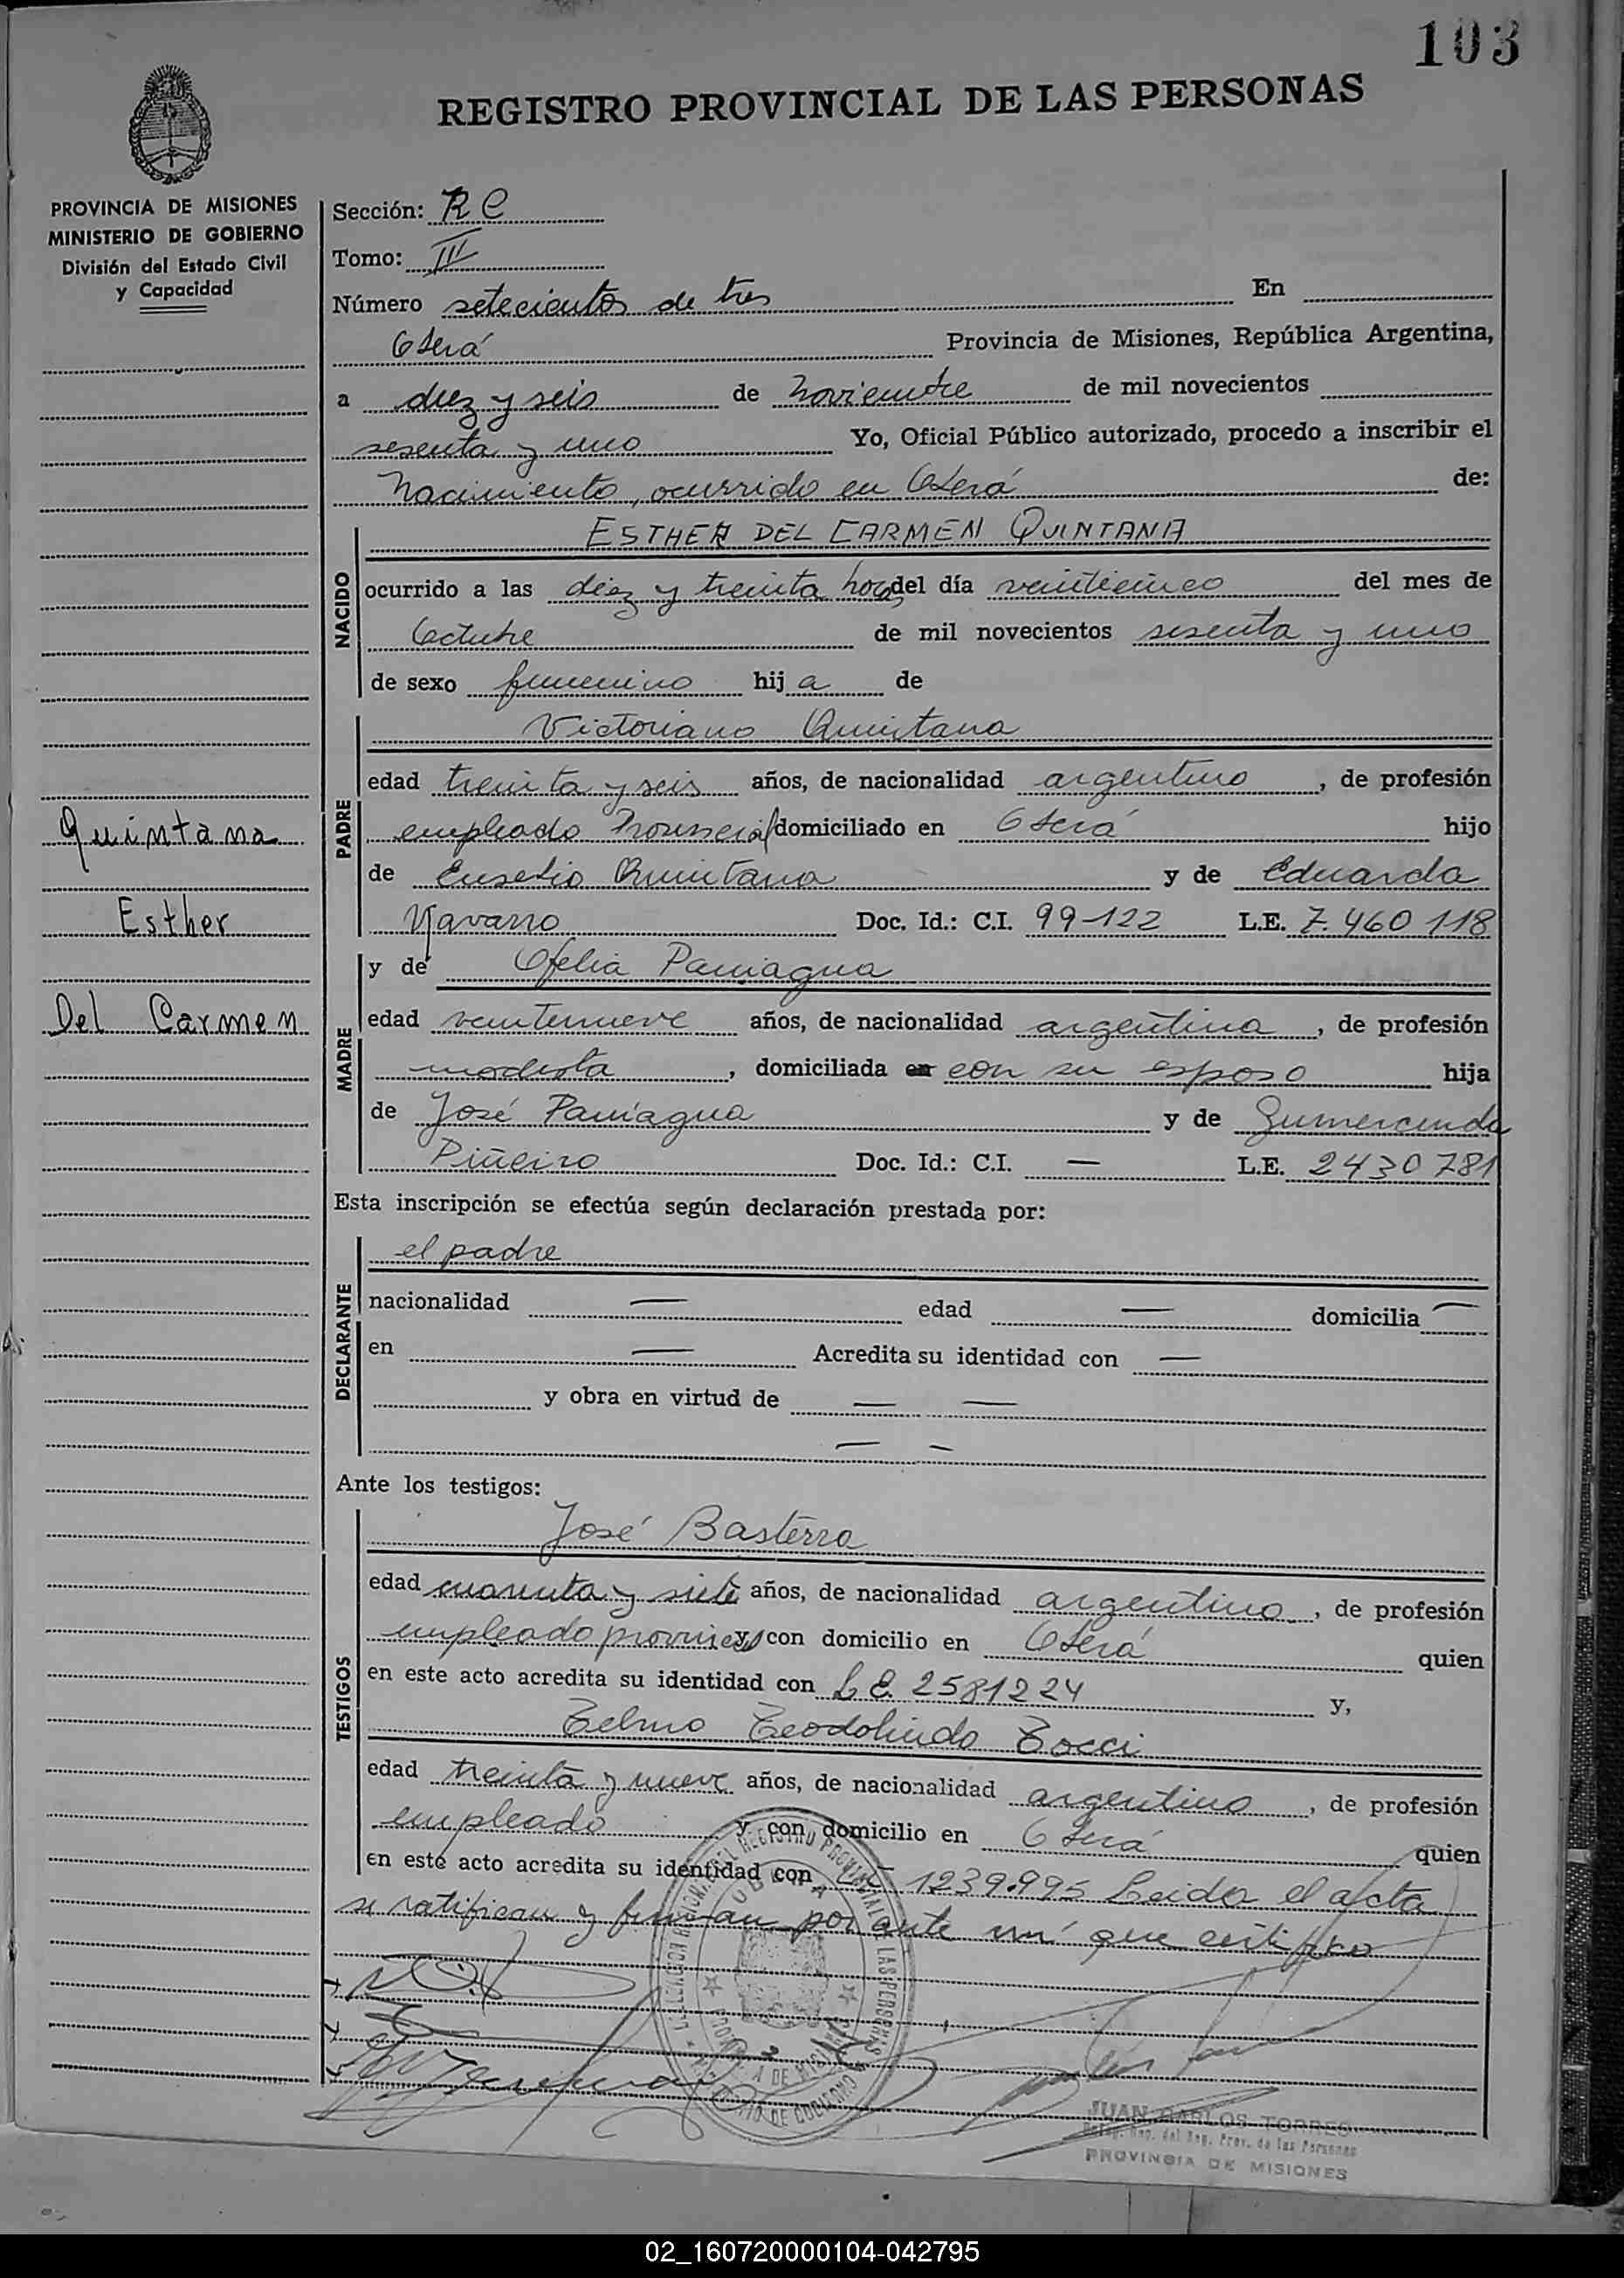 103
REGISTRO PROVINCIAL DE LAS PERSONAS
PROVINCIA DE MISIONES
MINISTERIO DE GOBIERNO
División del Estado Civil
y Capacidad
Sección: R C
Tomo: III
Número setecientos de tres En
Oberá Provincia de Misiones, República Argentina,
a diez y seis de noviembre de mil novecientos
sesenta y uno Yo, Oficial Público autorizado, procedo a inscribir el
nacimiento, ocurrido en Oberá de:
NACIDO
ESTHER DEL CARMEN QUINTANA
ocurrido a las diez y treinta horas del día veinticinco del mes de
Octubre de mil novecientos sesenta y uno
de sexo femenino hij a de
PADRE
Victoriano Quintana
edad treinta y seis años, de nacionalidad argentino, de profesión
empleado Provincial domiciliado en Oberá hijo
de Eusebio Quintana y de Eduarda
Navarro Doc. Id.: C.I. 99-122 L.E. 7.460 118
MADRE
y de Ofelia Paniagua
edad veintinueve años, de nacionalidad argentina, de profesión
modista, domiciliada en con su esposo hija
de José Paniagua y de Gumercinda
Piñeiro Doc. Id.: C.I. — L.E. 2430781
Quintana
Esther
Del Carmen
Esta inscripción se efectúa según declaración prestada por:
DECLARANTE
el padre
nacionalidad — edad — domicilia —
en — Acredita su identidad con —
y obra en virtud de — —
— —
Ante los testigos:
TESTIGOS
José Basterra
edad cuarenta y siete años, de nacionalidad argentino, de profesión
empleado provincial y con domicilio en Oberá quien
en este acto acredita su identidad con L E. 2581224 y,
Telmo Teodolindo Tocci
edad treinta y nueve años, de nacionalidad argentino, de profesión
empleado y con domicilio en Oberá quien
en este acto acredita su identidad con 1239.995 Leida el acta
se ratifican y firman por ante mí que certifico
JUAN CARLOS TORRES
del Reg. Prov. de las Personas
PROVINCIA DE MISIONES
02_160720000104-042795